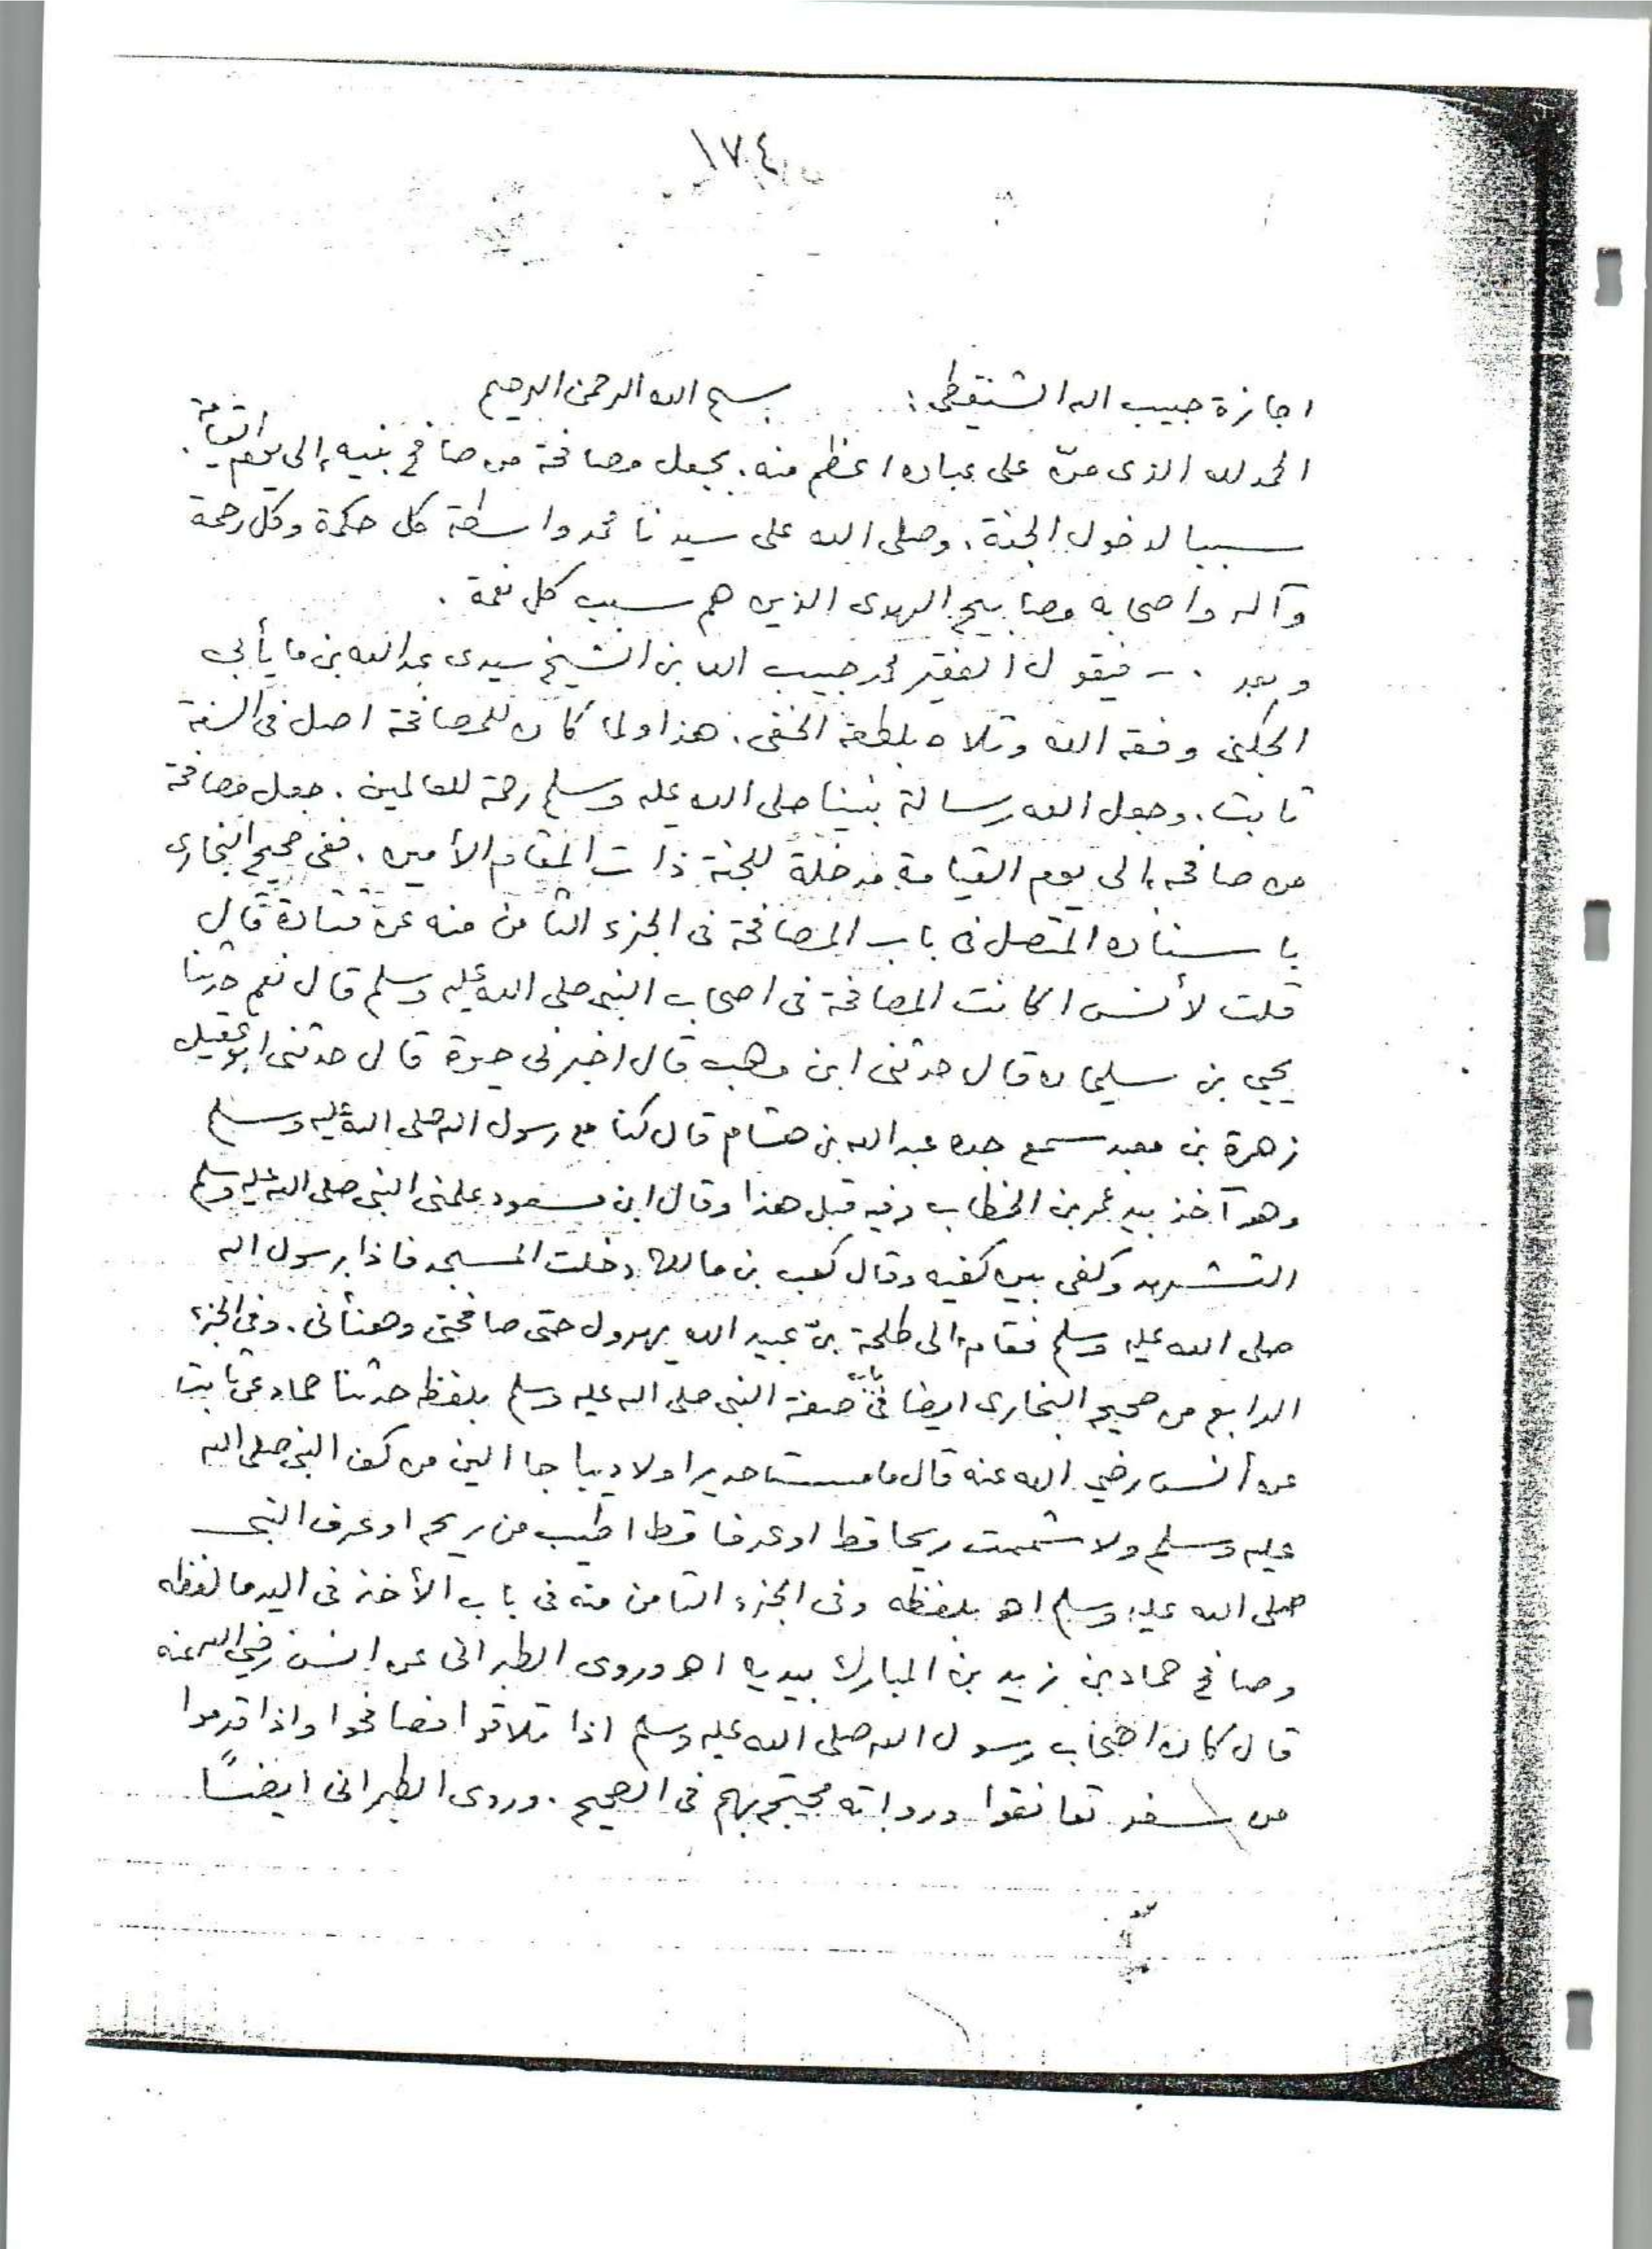 ١٧٤
اجازة حبيب الله الشنقيطى : بسم الله الرحمن الرحيم
الحمد لله الذى منّ على عباده اعظم منه . بجعل مصافحة من صافح نبيه إلى يوم القيامة .
سببا لدخول الجنة . وصلى الله على سيدنا محمد واسطة كل حكمة وكل رحمة
وآله واصحابه مصابيح الهدى الذين هم سبب كل نعمة .
وبعد . - فيقول الفقير محمد حبيب الله بن الشيخ سيدى عبد الله بن مايأبى
الجكنى وفقه الله وتلاه بلطفه الخفى . هذا ولما كان للمصافحة اصل فى السنة
ثابت . وجعل الله رسالة نبينا صلى الله عليه وسلم رحمة للعالمين . جعل مصافحة
من صافحه الى يوم القيامة مدخلة للجنة ذات المقام الأمين . ففى صحيح البخارى
باسناده المتصل فى باب المصافحة فى الجزء الثامن منه عن قتادة قال
قلت لأنس اكانت المصافحة فى اصحاب النبى صلى الله عليه وسلم قال نعم حدثنا
يحيى بن سليمان قال حدثنى ابن وهب قال اخبرنى حيوة قال حدثنى ابو عقيل
زهرة بن معبد سمع جده عبد الله بن هشام قال كنا مع رسول الله صلى الله عليه وسلم
وهو آخذ بيد عمر بن الخطاب وفيه قبل هذا وقال ابن مسعود علمنى النبى صلى الله عليه وسلم
التشهد وكفى بين كفيه وقال كعب بن مالك دخلت المسجد فاذا برسول الله
صلى الله عليه وسلم فقام الى طلحة بن عبيد الله يهرول حتى صافحنى وهنأنى . وفى الجزء
الرابع من صحيح البخارى ايضا فى باب صفة النبى صلى الله عليه وسلم بلفظ حدثنا حماد عن ثابت
عن أنس رضي الله عنه قال ما مسست حديرا ولا ديباجا الين من كف النبى صلى الله
عليه وسلم ولا شممت ريحا قط او عرفا قط اطيب من ريح او عرف النبى
صلى الله عليه وسلم اهـ بلفظه وفى الجزء الثامن منه فى باب الأخذ فى اليد ما لفظه
وصافح حماد بن زيد بن المبارك بيديه اهـ وروى الطبرانى عن انس رضي الله عنه
قال كان اصحاب رسول الله صلى الله عليه وسلم اذا تلاقوا فصافحوا واذا قدموا
من سفر تعانقوا ورواته محتج بهم فى الصحيح . وروى الطبرانى ايضًا